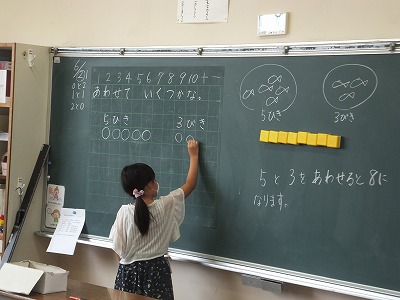 1 2 3 4 5 6 7 8 9 10 + -
あわせて いくつかな。
5ひき
3びき
5ひき
3びき
5と3をあわせると8に
なります。